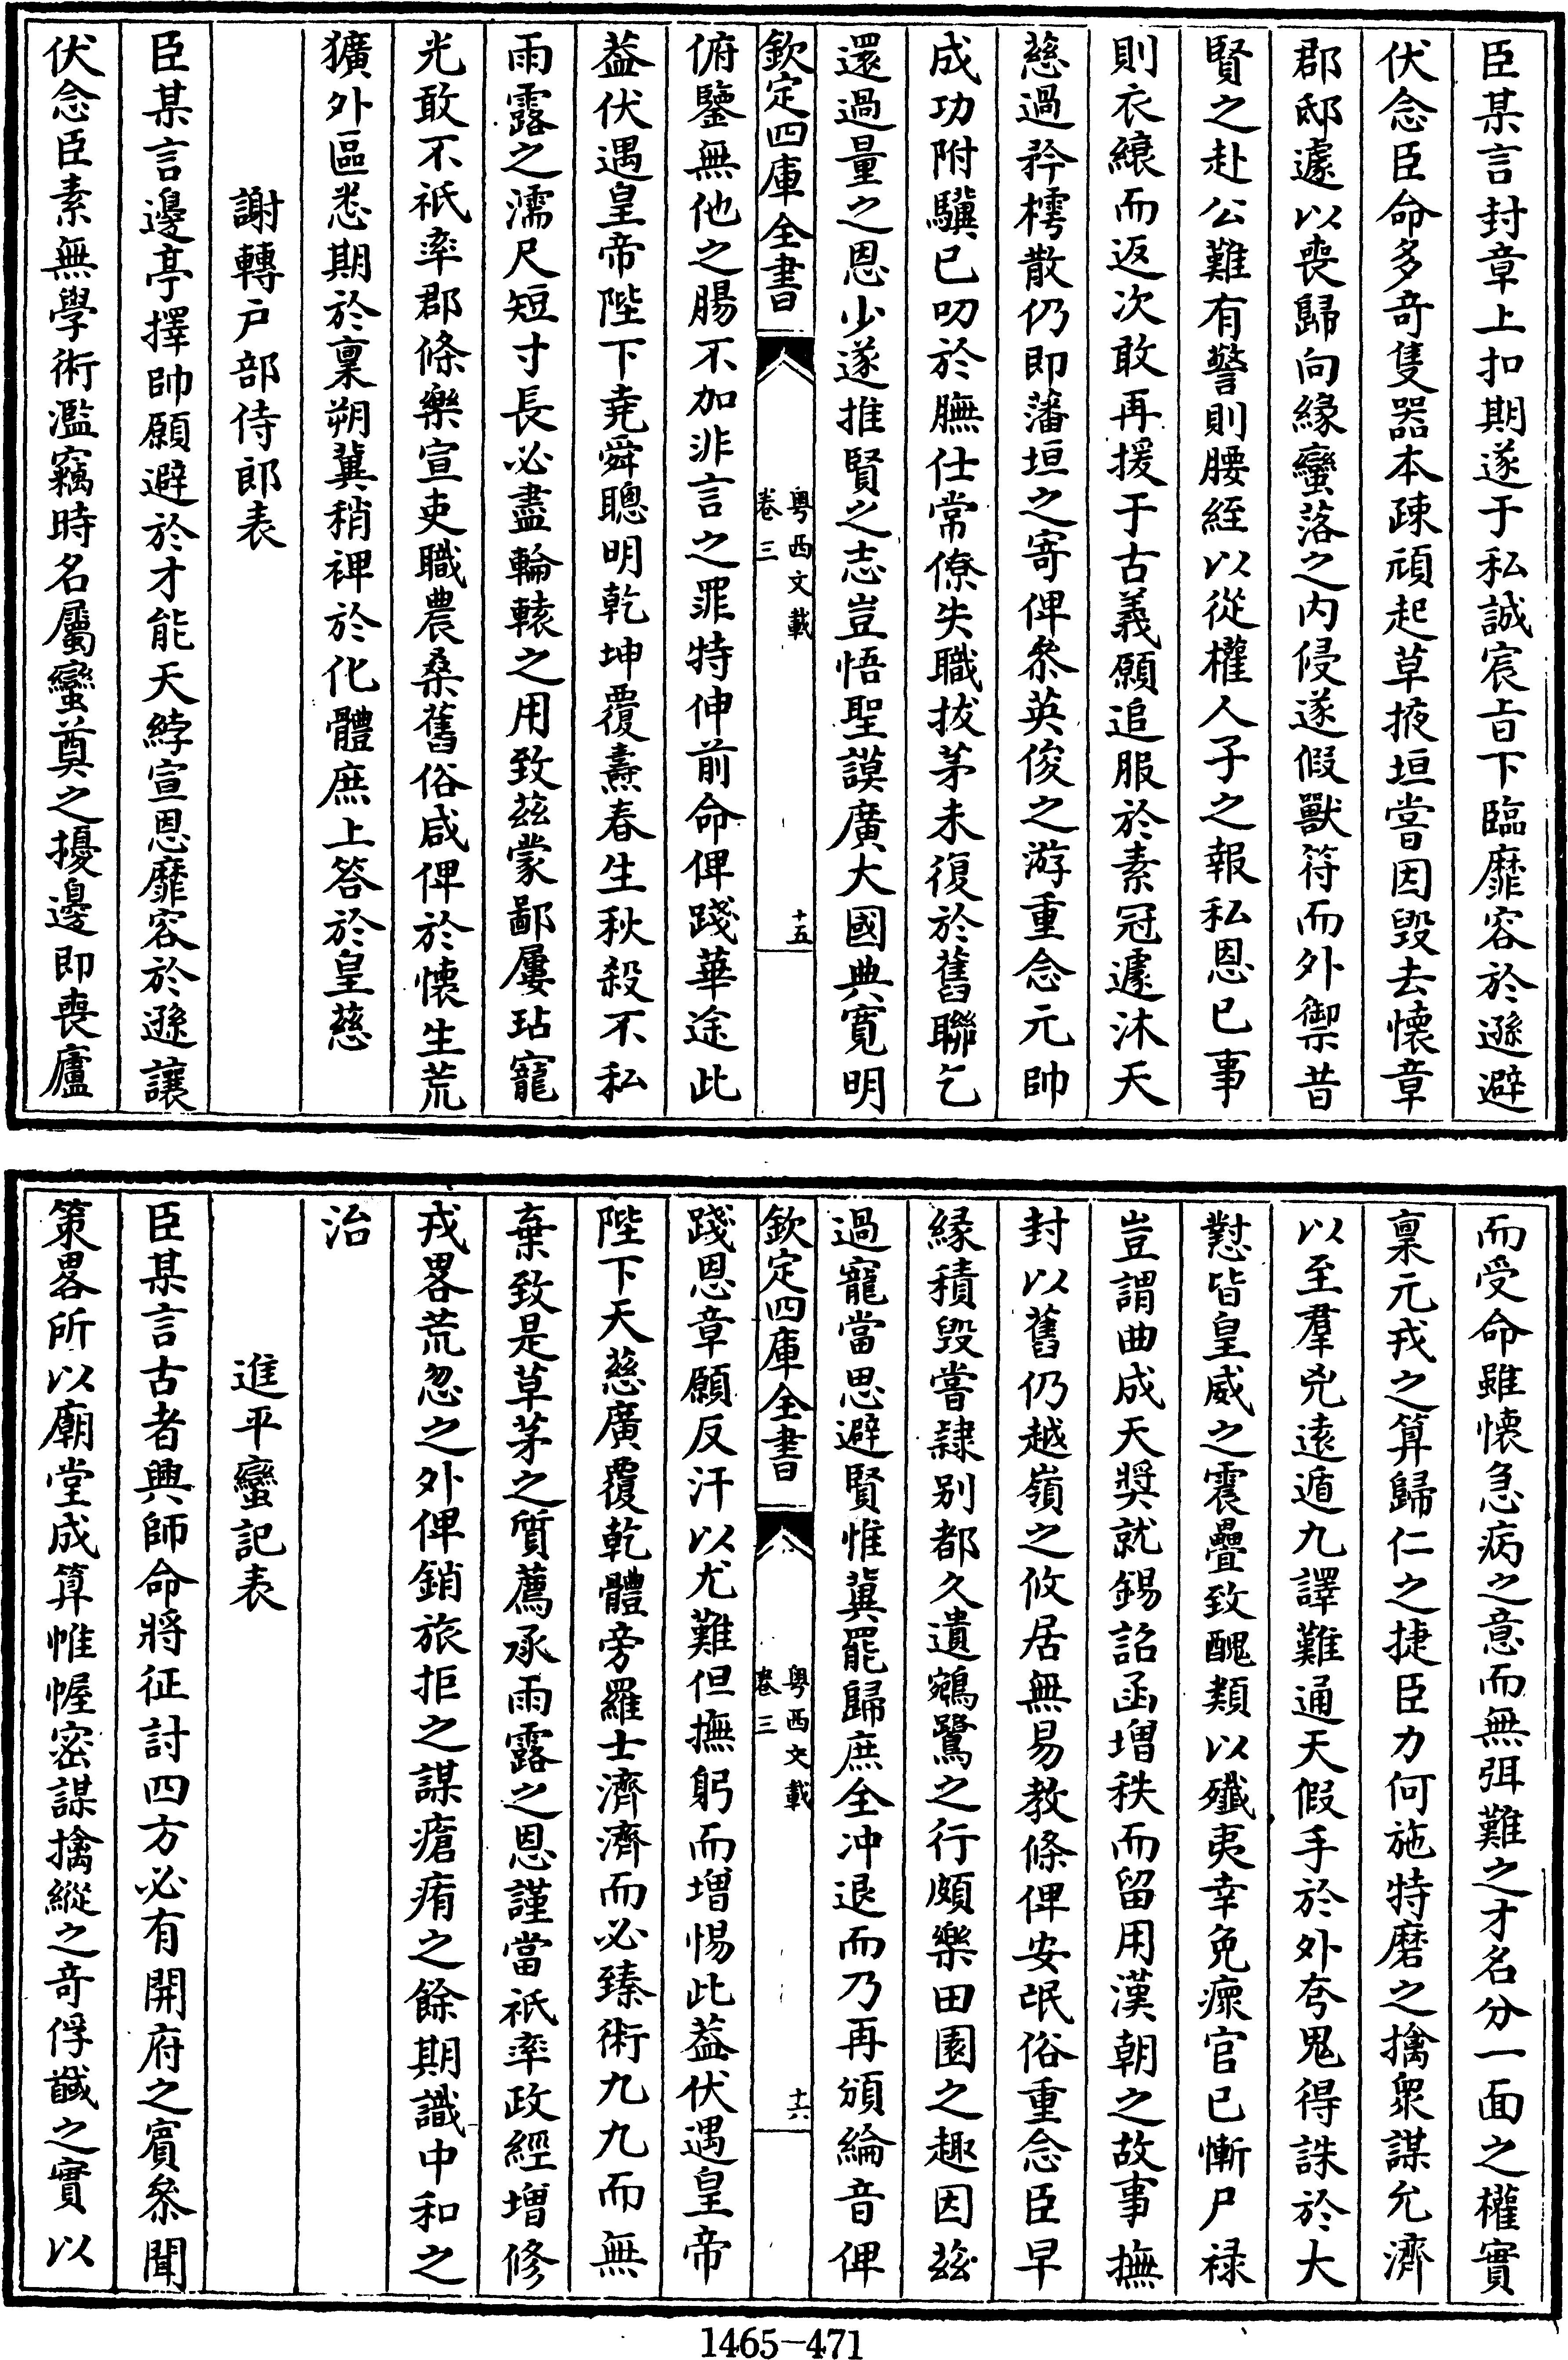 臣某言封章上扣期遂于私誠宸㫖下臨靡容於遜避
伏念臣命多竒隻器本疎頑起草掖垣嘗因毁去懐章
郡邸遽以喪歸向縁蠻落之内侵遂假獸符而外禦昔
賢之赴公難有警則腰絰以從權人子之報私恩已事
則衣縗而返次敢再援于古義願追服於素冠遽沐天
慈過矜樗散仍即藩垣之寄俾叅英俊之游重念元帥
成功附驥已叨於膴仕常僚失職拔茅未復於舊聯乞
還過量之恩少遂推賢之志豈悟聖謨廣大國典寛明
欽定四庫全書
粤西文載
卷三
十五
俯鑒無他之腸不加非言之罪特伸前命俾踐華途此
葢伏遇皇帝陛下堯舜聰明乾坤覆燾春生秋殺不私
雨露之濡尺短寸長必盡輪轅之用致兹蒙鄙屢玷寵
光敢不祇率郡條樂宣吏職農桑舊俗咸俾於懐生荒
獷外區悉期於稟朔冀稍裨於化體庶上答於皇慈
謝轉户部侍郎表
臣某言邊亭擇帥願避於才能天綍宣恩靡容於遜讓
伏念臣素無學術濫竊時名屬蠻蒉之擾邊即喪廬
而受命雖懐急病之意而無弭難之才名分一面之權實
稟元戎之算歸仁之捷臣力何施特磨之擒衆謀允濟
以至羣兇遠遁九譯難通天假手於外夸鬼得誅於大
憝皆皇威之震疊致醜類以殱夷幸免瘝官已慚尸禄
豈謂曲成天奬就錫詔函增秩而留用漢朝之故事撫
封以舊仍越嶺之攸居無易教條俾安氓俗重念臣早
縁積毁嘗隷别都久遺鵷鷺之行頗樂田園之趣因兹
過寵當思避賢惟冀罷歸庶全冲退而乃再頒綸音俾
欽定四庫全書
粤西文載
卷三
十六
踐恩章願反汗以尤難但撫躬而增惕此葢伏遇皇帝
陛下天慈廣覆乾體旁羅士濟濟而必臻術九九而無
棄致是草茅之質薦承雨露之恩謹當祇率政經增修
戎畧荒忽之外俾銷旅拒之謀瘡痏之餘期識中和之
治
進平蠻記表
臣某言古者興師命將征討四方必有開府之賓叅聞
策畧所以廟堂成算帷幄密謀擒縱之竒俘馘之實以
1465-471